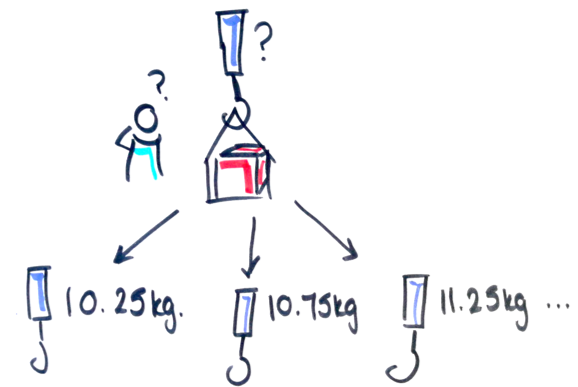 ?
?
10.25kg.
10.75kg
11.25kg ...